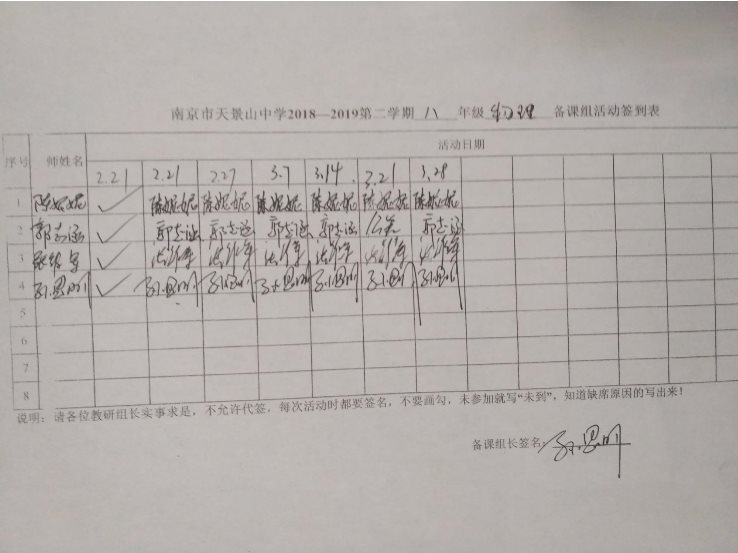 南京市天景山中学2018—2019第二学期 八 年级 物理 备课组活动签到表
序号 师姓名 活动日期
2.21 2.21 2.27 3.7 3.14 3.21 3.28
1 陈妮妮 ✓ 陈妮妮 陈妮妮 陈妮妮 陈妮妮 陈妮妮 陈妮妮
2 郭志涵 ✓ 郭志涵 郭志涵 郭志涵 郭志涵 公差 郭志涵
3 ✓
4 孙思明 ✓ 孙思明 孙思明 孙思明 孙思明 孙思明 孙思明
5
6
7
8
说明：请各位教研组长实事求是，不允许代签，每次活动时都要签名，不要画勾，未参加就写“未到”，知道缺席原因的写出来！
备课组长签名：孙思明